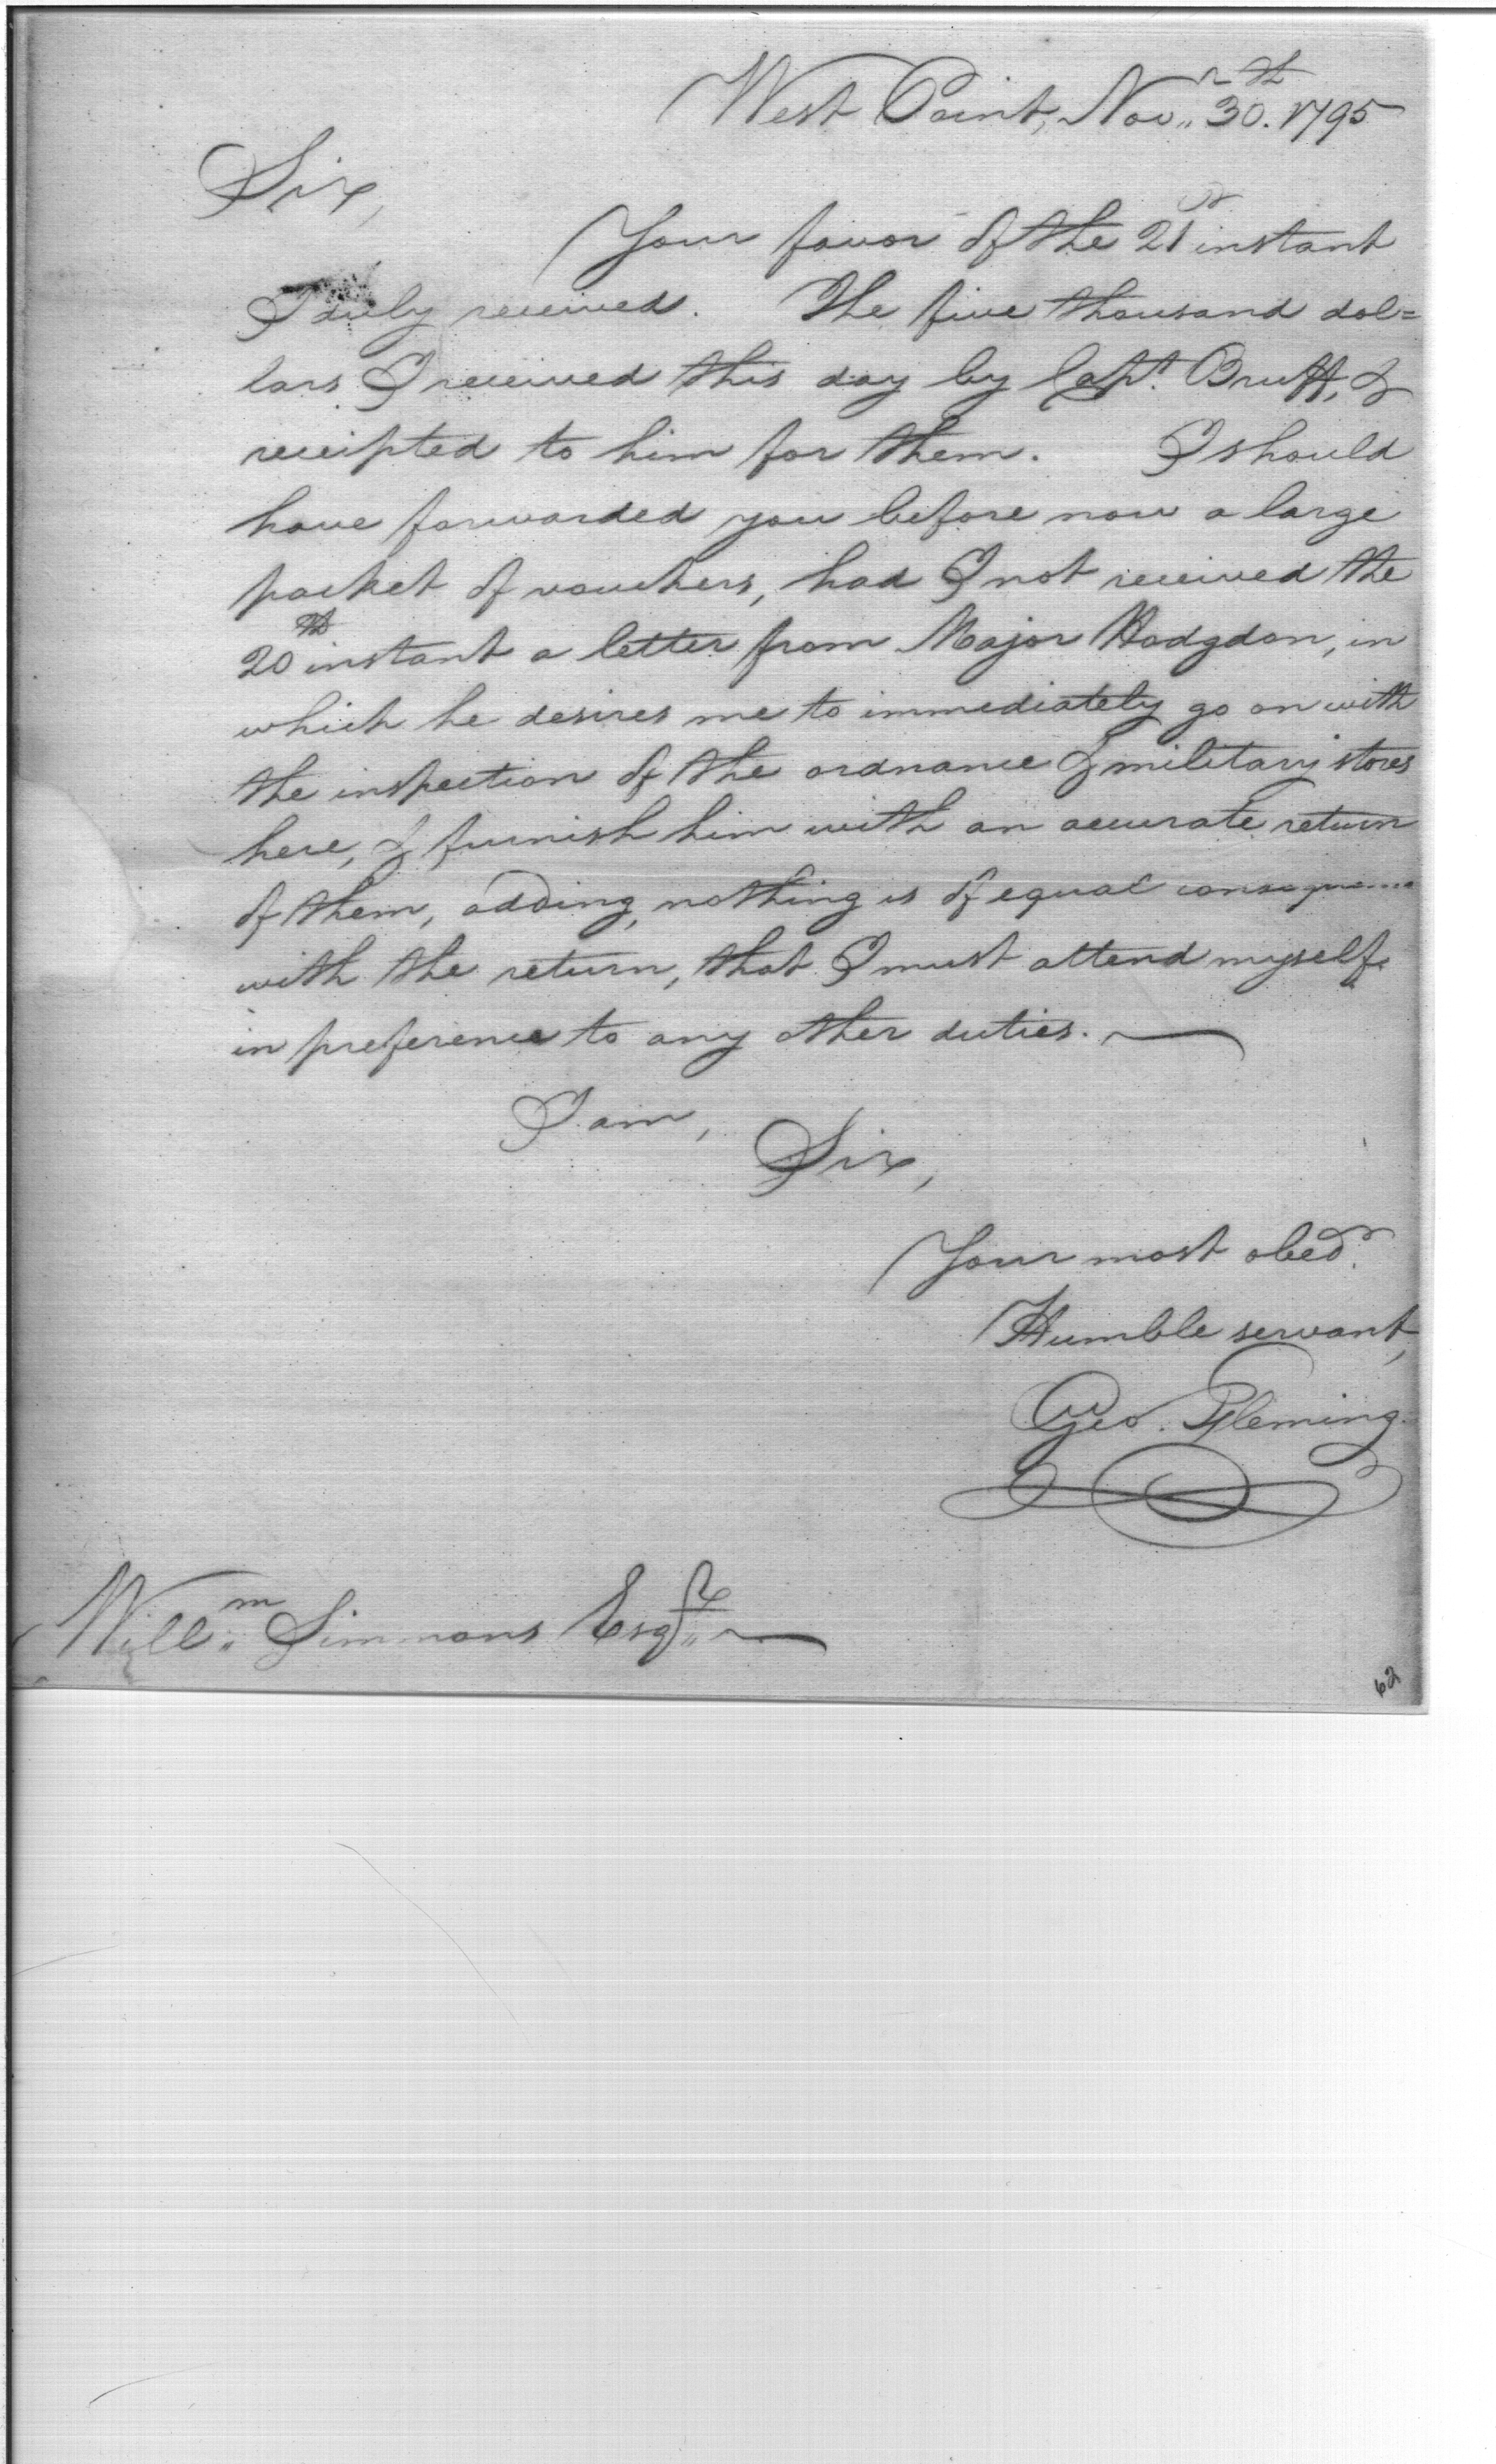 West Point, Nov.r 30.th 1795
Sir,
Your favor of the 21st instant
I duly received. The five thousand dol=
lars I received this day by Capt. Bruff, &
receipted to him for them. I should
have forwarded you before now a large
packet of vouchers, had I not received the
20th instant a letter from Major Hodgdon, in
which he desires me to immediately go on with
the inspection of the ordnance & military stores
here, & furnish him with an accurate return
of them, adding, nothing is of equal consequence
with the return, that I must attend myself
in preference to any other duties.
I am,
Sir,
Your most obed.t
Humble servant,
Geo. Fleming.
Will.m Simmons Esq.r
62